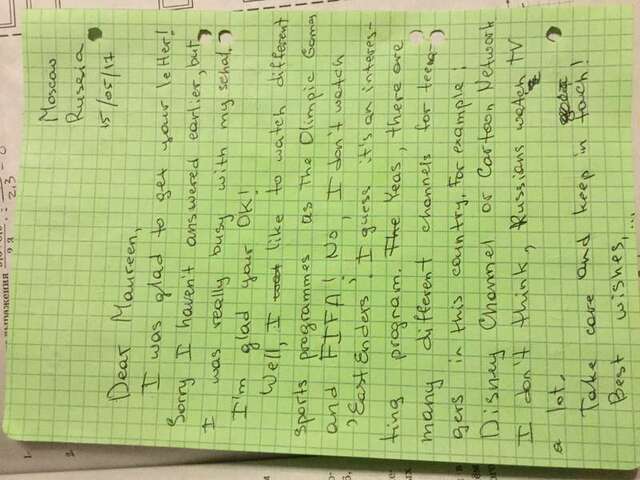 выражения
2,3
1.
2.
Moscow
Russia
15/05/17
Dear Maureen,
I was glad to get your letter!
Sorry I haven't answered earlier, but
I was really busy with my schol.
I'm glad your OK!
Well, I like to watch different
sports programmes as The Olimpic Games
and FIFA! No, I don't watch
'East Enders'. I guess it's an interes-
ting program. The Yeas, there are
many different channels for teena-
gers in this country. For example:
Disney Channel or Cartoon Network
I don't think, Russians watch TV
a lot.
Take care and keep in toach!
Best wishes,
...